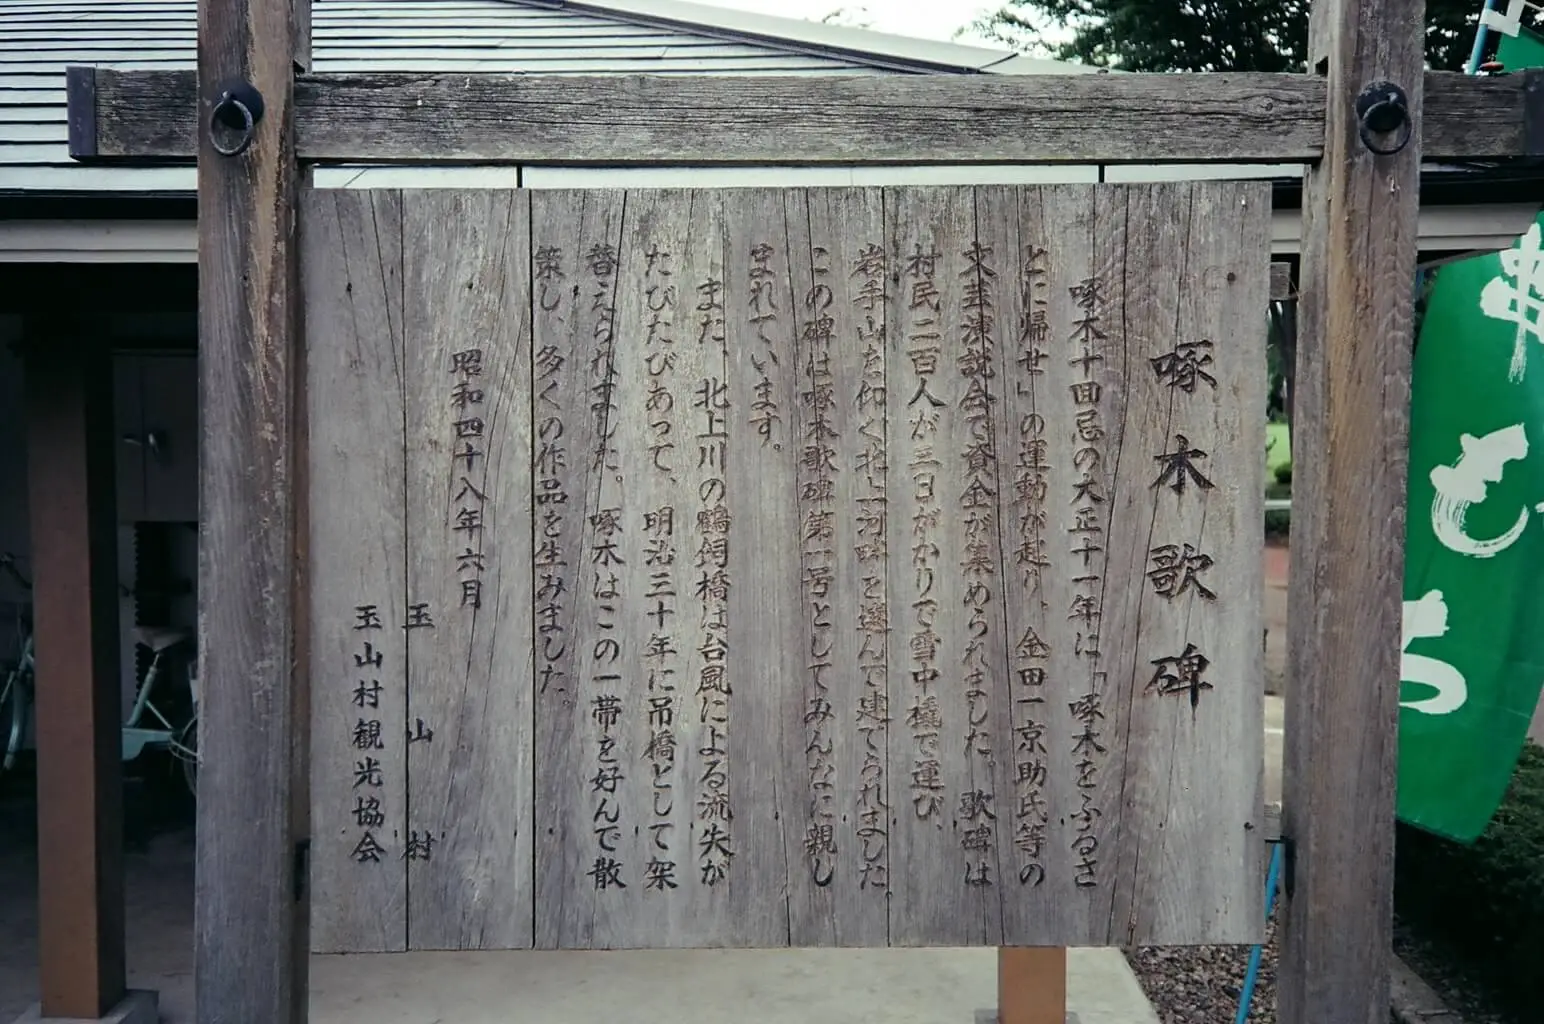 啄木歌碑
啄木十回忌の大正十一年に「啄木をふるさ
とに帰せ」の運動が起り、金田一京助氏等の
文芸演説会で資金が集められました。歌碑は
村民二百人が三日がかりで雪中橇で運び、
岩手山を仰ぐ北上河畔を選んで建てられました。
この碑は啄木歌碑第一号としてみんなに親し
まれています。
また、北上川の鶴飼橋は台風による流失が
たびたびあって、明治三十年に吊橋として架
替えられました。啄木はこの一帯を好んで散
策し、多くの作品を生みました。
昭和四十八年六月
玉山村
玉山村観光協会
もち